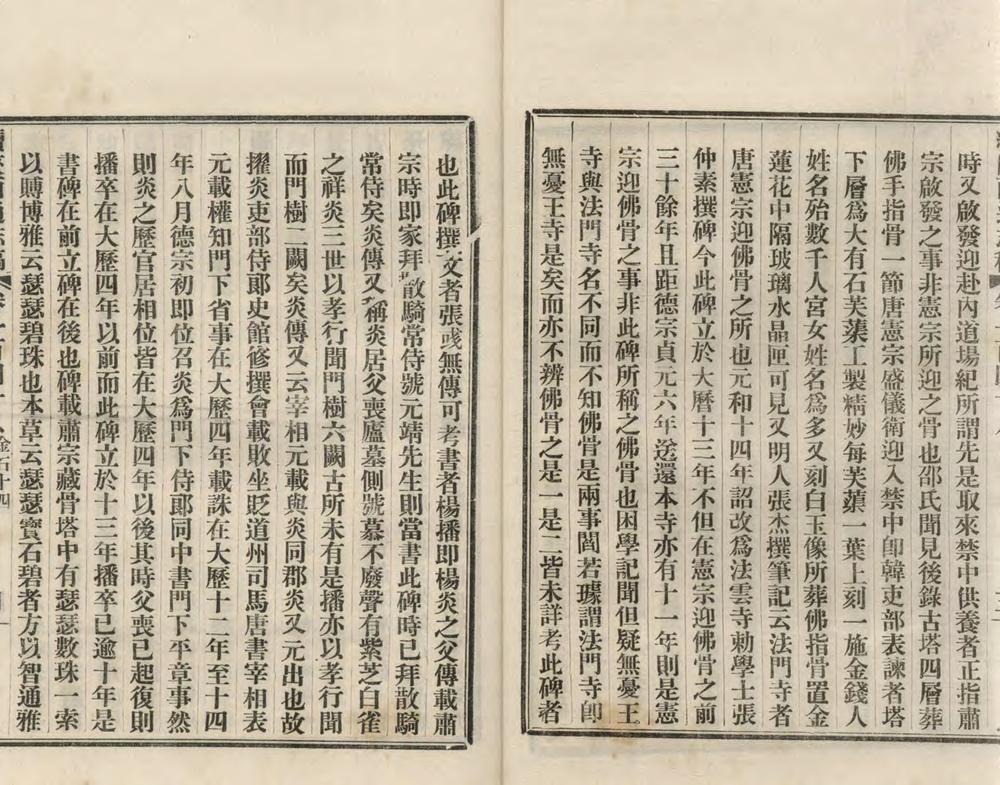 時又啟發迎赴內道場紀所謂先是取來禁中供養者正指肅
宗啟發之事非憲宗所迎之骨也邵氏聞見後錄古塔四層葬
佛手指骨一節唐憲宗盛儀衛迎入禁中卽韓吏部表諫者塔
下層爲大有石芙蕖工製精妙每芙蕖一葉上刻一施金錢人
姓名殆數千人宮女姓名爲多又刻白玉像所葬佛指骨置金
蓮花中隔玻璃水晶匣可見又明人張杰撰筆記云法門寺者
唐憲宗迎佛骨之所也元和十四年詔改爲法雲寺勅學士張
仲素撰碑今此碑立於大曆十三年不但在憲宗迎佛骨之前
三十餘年且距德宗貞元六年送還本寺亦有十一年則是憲
宗迎佛骨之事非此碑所稱之佛骨也困學記聞但疑無憂王
寺與法門寺名不同而不知佛骨是兩事閻若璩謂法門寺卽
無憂王寺是矣而亦不辨佛骨之是一是二皆未詳考此碑者
也此碑撰文者張彧無傳可考書者楊播卽楊炎之父傳載肅
宗時卽家拜散騎常侍號元靖先生則當書此碑時已拜散騎
常侍矣炎傳又稱炎居父喪廬墓側號慕不廢聲有紫芝白雀
之祥炎三世以孝行聞門樹六闕古所未有是播亦以孝行聞
而門樹二闕矣炎傳又云宰相元載與炎同郡炎又元出也故
擢炎吏部侍郞史館修撰會載敗坐貶道州司馬唐書宰相表
元載權知門下省事在大歷四年載誅在大歷十二年至十四
年八月德宗初卽位召炎爲門下侍郞同中書門下平章事然
則炎之歷官居相位皆在大歷四年以後其時父喪已起復則
播卒在大歷四年以前而此碑立於十三年播卒已逾十年是
書碑在前立碑在後也碑載肅宗藏骨塔中有瑟瑟數珠一索
以賻博雅云瑟瑟碧珠也本草云瑟瑟寶石碧者方以智通雅
金石十四